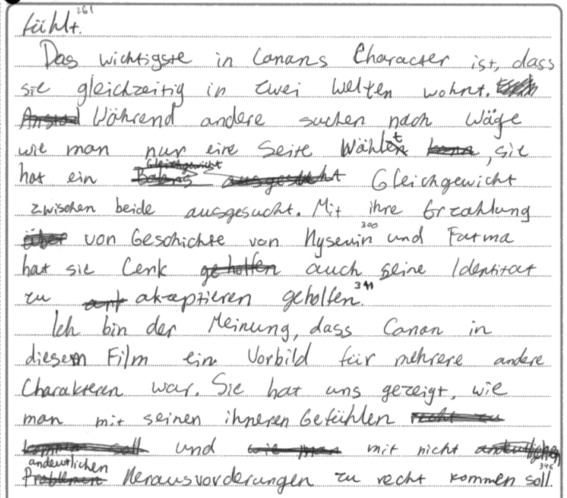 fühlt. 261
Das wichtigste in Canans Character ist, dass
sie gleichzeitig in zwei Welten wohnt.
Während andere suchen nach Wäge
wie man nur eine Seite Wählt, sie
hat ein Gleichgewicht
zwischen beide ausgesucht. Mit ihre Erzahlung
von Geschichte von Hyseuin 300 und Fatma
hat sie Cenk auch seine Identitat
zu akzeptieren geholfen. 311
Ich bin der Meinung, dass Canan in
diesem Film ein Vorbild für mehrere andere
Charakteren war. Sie hat uns gezeigt, wie
man mit seinen ihneren Gefühlen
und mit nicht
andeutlichen Herausvorderungen zu recht kommen soll. 346